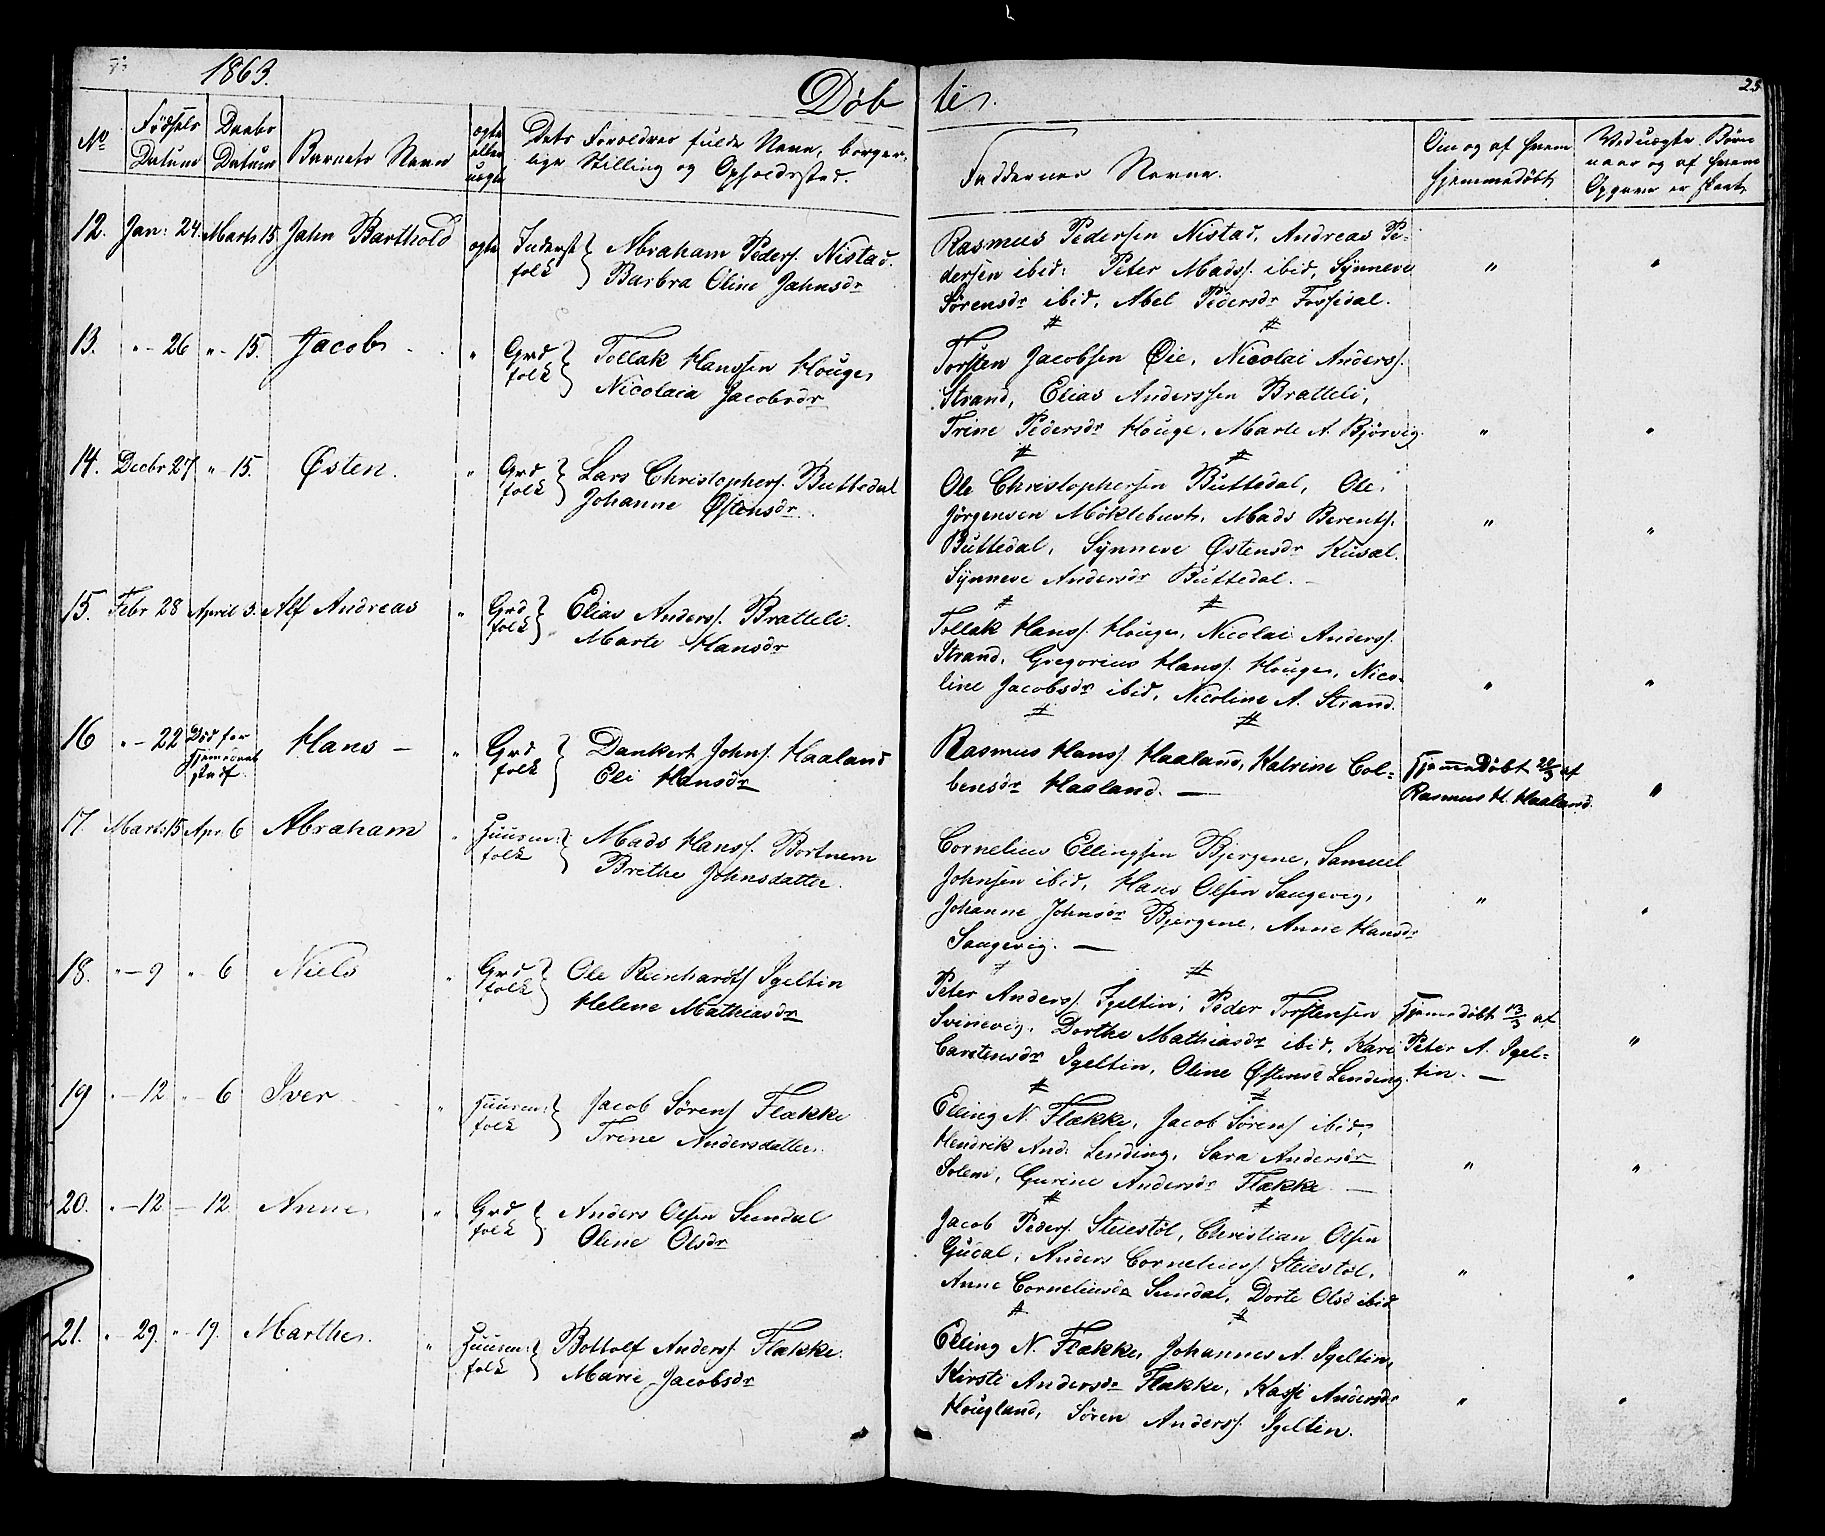 1863.
Døbte.
25
No
Fødsels Datum
Daabs Datum
Barnets Navn
ægte eller uægte
Dets Forældres fulde Navn, borger-
lige Stilling og Opholdssted.
Faddernes Navne.
Om og af hvem
hjemmedøbt
Ved uægte Børn
naar og af hvem
Opgave er skeet
12. Jan: 24. Marts 15 Jahn Barthold ægte Inderst folk } Abraham Peders. Nistad.
Barbra Oline Jahnsdr
Rasmus Pedersen Nistad, Andreas Pe-
dersen ibid: Peter Madss. ibid, Synneve
Sørensdr ibid, Abel Pedersdr Forsidal.
" "
13. " - 26 " - 15. Jacob " Grd folk } Tollak Hanssen Houge,
Nicolaia Jacobsdr
Torsten Jacobsen Øie, Nicolai Anderss.
Strand, Elias Anderssen Bratteli,
Trine Pedersdr Houge, Marte A. Bjørvig.
" "
14. Decbr 27. " - 15. Østen. " Grd folk } Lars Christophers. Buttedal
Johanne Østensdr.
Ole Christophersen Buttedal, Ole
Jørgensen Møklebust, Mads Berents.
Buttedal, Synneve Østensdr Husal.
Synneve Andersdr Buttedal. —
" "
15. Febr 28 April 5. Alf Andreas " Grd folk } Elias Anders. Bratteli.
Marte Hansdr
Tollak Hanss. Houge, Nicolai Anderss.
Strand, Gregorius Hanss. Houge, Nico-
line Jacobsdr ibid, Nicoline A. Strand.
" "
16 " - 22 Død før Hans — " Grd folk } Dankert Johns. Haaland
Eli Hansdr
Rasmus Hanss. Haaland, Katrine Col-
bensdr Haaland. —
Hjemmedøbt 28/3 af
Rasmus H. Haaland.
"
17. Mart: 15 Apr. 6 Abraham " Huusm: folk } Mads Hanss. Bortnem
Brithe Johnsdatter.
Cornelius Ellingsen Bjergene, Samuel
Johnsen ibid, Hans Olsen Saugevig,
Johanne Johnsdr Bjergene, Anne Hansdr
Saugevig. —
" "
18. " - 9 " - 6 Niels " Grd folk } Ole Reinhardts Igeltin
Helene Mathiasdr
Peter Anderss. Igeltin, Peder Torstensen
Svinevig, Dorthe Mathiasdr ibid, Kari
Carstensdr Igeltin, Oline Østensd Lending.
Hjemmedøbt 13/3 af
Peter A. Igel-
tin. —
"
19 " - 12 " - 6 Iver " Huusm: folk } Jacob Sørens Flakke
Trine Andersdatter
Elling N. Flakke, Jacob Sørens ibid,
Hendrik And. Lending, Sara Andersdr
Solem, Gurine Andersdr Flakke. —
" "
20. " - 12 — 12 Anne, " Grd folk } Anders Olsen Sundal
Oline Olsdr
Jacob Peders. Steiestøl, Christian Olsen
Gudal, Anders Corneliuss. Steiestøl,
Anne Corneliusdr Sundal, Dorte Olsd ibid
" "
21. " - 29. " - 19. Marthe. " Huusm: folk } Bottolf Anderss. Flakke.
Marie Jacobsdr
Elling N. Flakke, Johannes A. Igeltin,
Kirsti Andersdr Flakke, Andersdr
Hougland, Søren Anderss. Igeltin.
" "